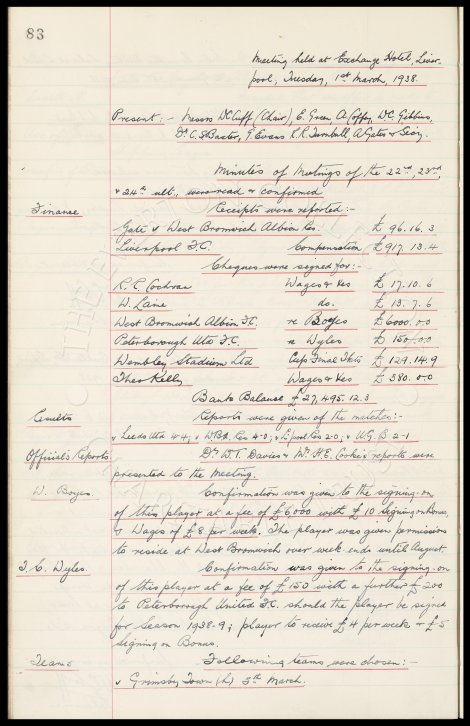 83
Meeting held at Exchange Hotel, Liver-
pool, Tuesday, 1st March, 1938.
Present:- Messrs W.C. Cuff (Chair), E. Green, A. Coffey, W.C. Gibbins,
Dr. C.S. Baxter, G. Evans, R.R. Turnbull, A. Gates & Secy.
Minutes of Meetings of the 22nd, 23rd,
& 24th ult., were read & confirmed
Finance Receipts were reported:-
Gate v West Bromwich Albion Res. £ 96.16.3
Liverpool F.C. Compensation £917.13.4
Cheques were signed for:-
R.E. Cochran Wages & xes £ 17.10.6
W. Lane do. £ 13.7.6
West Bromwich Albion F.C. re Boyes £6000.0.0
Peterborough Utd F.C. re Wyles £ 150.0.0
Wembley Stadium Ltd Cup Final Tkts £ 129.14.9
Theo Kelly Wages & xes £ 380.0.0
Bank Balance £27,495.12.3
Results Reports were given of the matches:-
v Leeds Utd 4-4; v W.B.A. Res 4-0; v L'pool Res 2-0; v U.G.B 2-1
Official's Reports. Dr. W.T. Davies & Mr. H.E. Cooke's reports were
presented to the Meeting.
W. Boyes. Confirmation was given to the signing-on
of this player at a fee of £6000 with £10 signing on Bonus
& Wages of £8 per week. The player was given permission
to reside at West Bromwich over week-ends until August.
T.C. Wyles. Confirmation was given to the signing-on
of this player at a fee of £150 with a further £200
to Peterborough United F.C. should the player be signed
for season 1938-9; player to receive £4 per week & £5
signing on Bonus.
Teams Following teams were chosen:-
v Grimsby Town (h) 5th March.